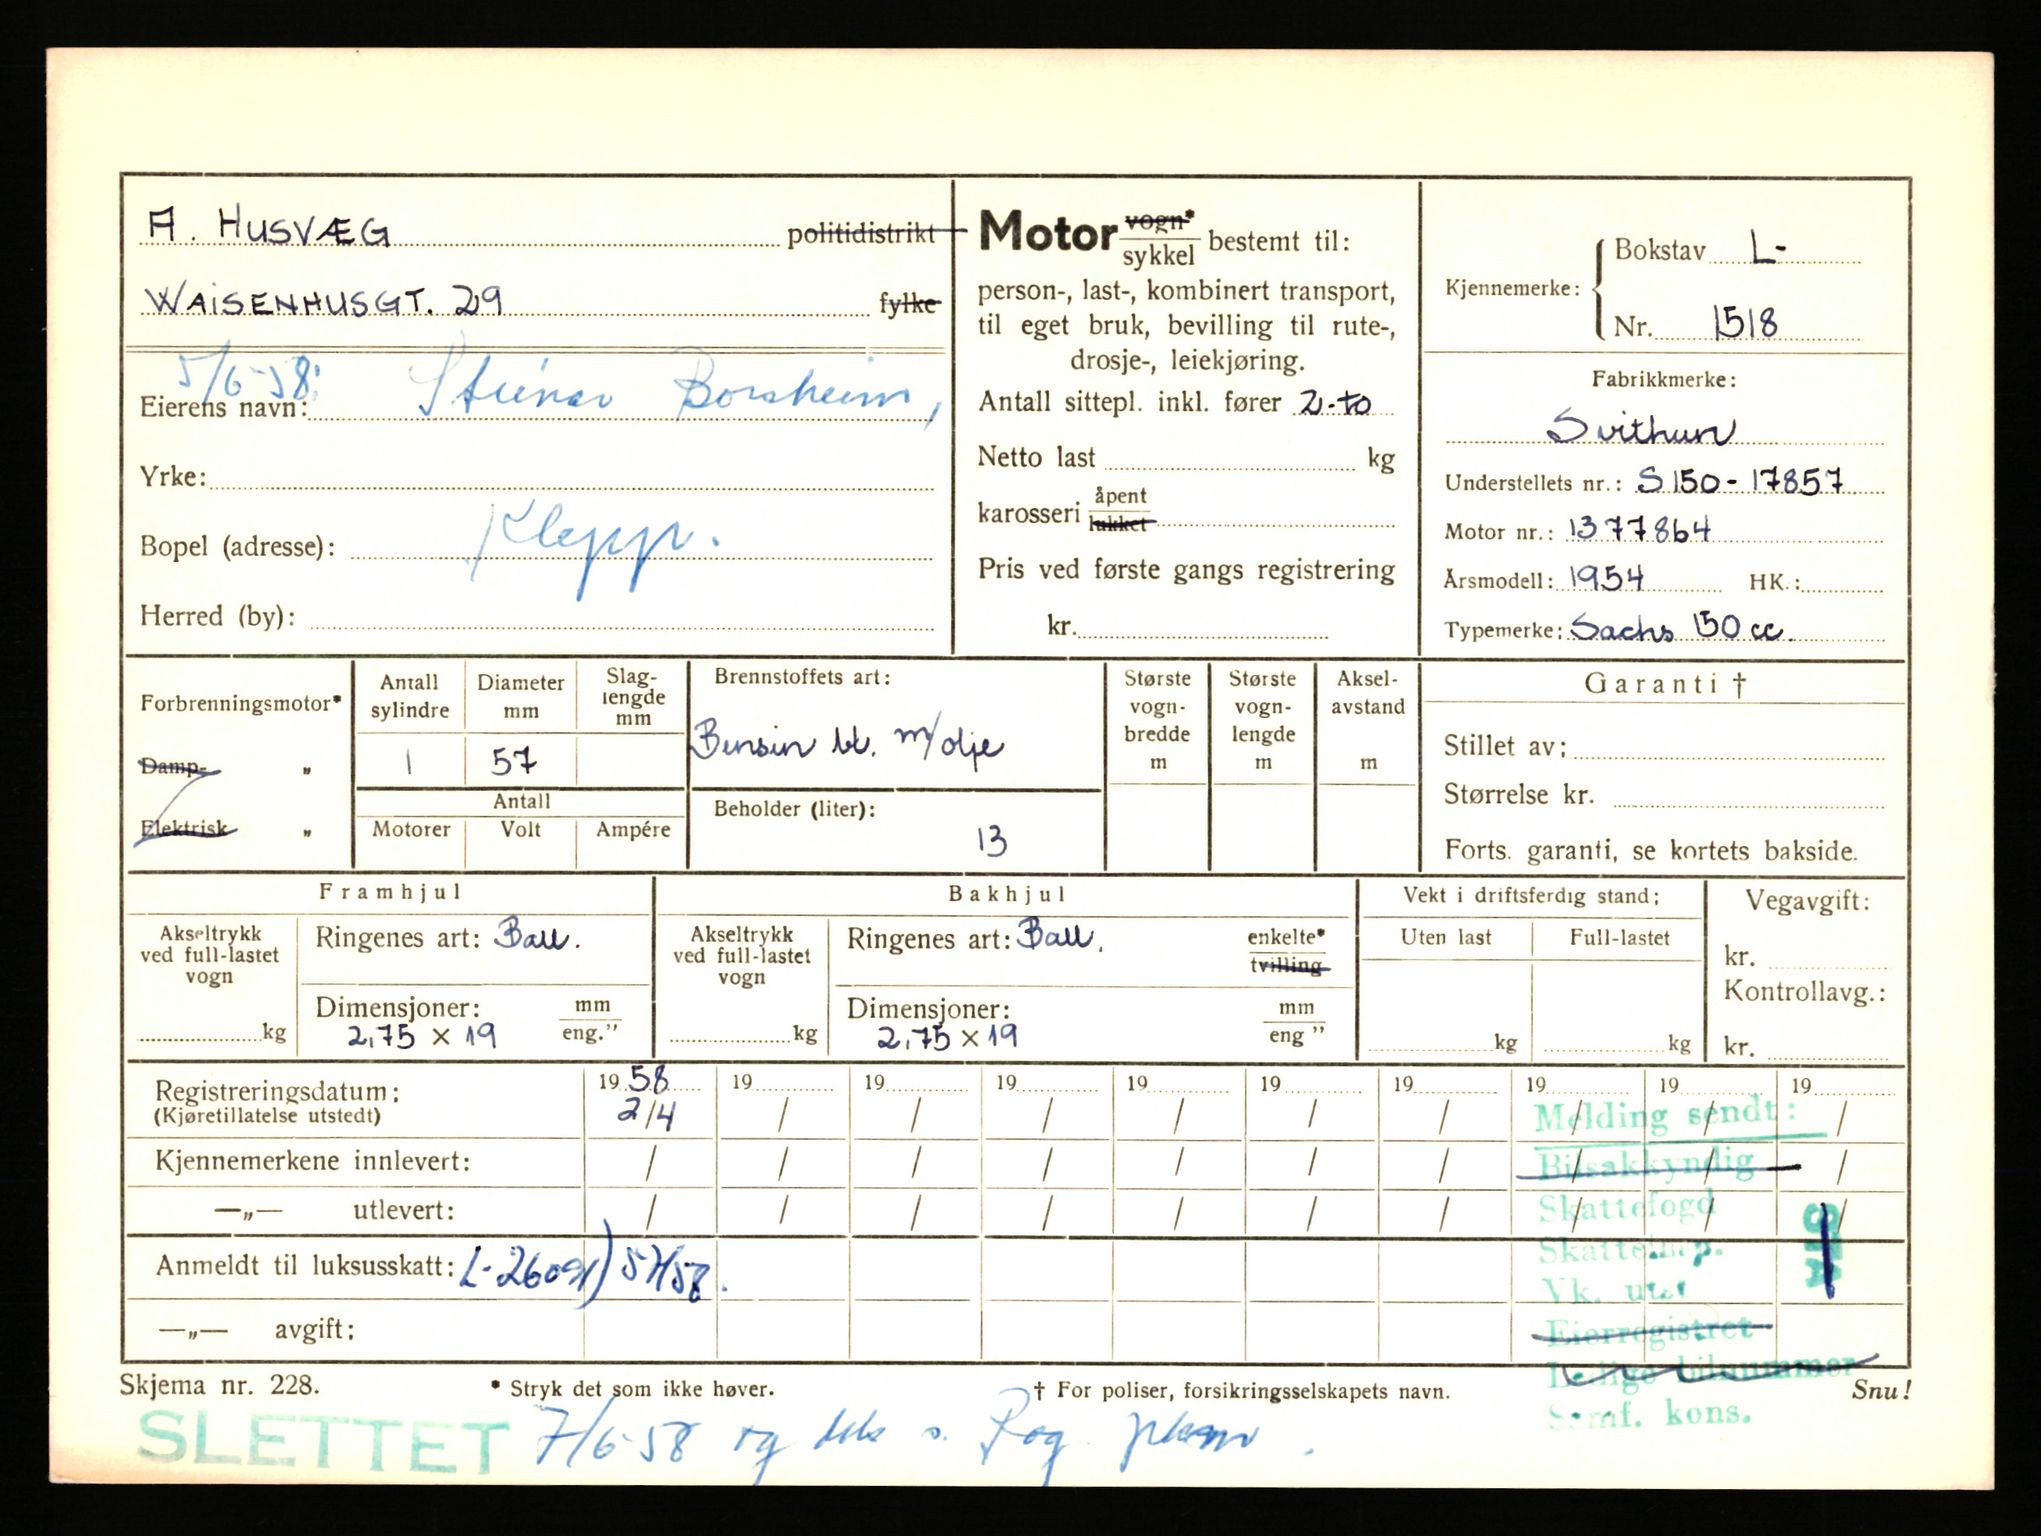 A. HUSVÆG politidistrikt
WAISENHUSGT. 29 fylke
5/6-58: Steinar Borsheim,
Eierens navn:
Yrke:
Klepp.
Bopel (adresse):
Herred (by):
Motor vogn* / sykkel bestemt til:
person-, last-, kombinert transport,
til eget bruk, bevilling til rute-,
drosje-, leiekjøring.
Antall sittepl. inkl. fører 2-to
Netto last kg
karosseri åpent / lukket
Pris ved første gangs registrering
kr.
Kjennemerke: Bokstav L-
Nr. 1518
Fabrikkmerke:
Svithun
Understellets nr.: S 150-17857
Motor nr.: 1377864
Årsmodell: 1954 HK.:
Typemerke: Sachs 150 cc.
Forbrenningsmotor*
Damp- „
Elektrisk „
Antall sylindre
1
Diameter mm
57
Slag-lengde mm
Antall
Motorer Volt Ampére
Brennstoffets art:
Bensin bl. m/olje
Beholder (liter):
13
Største vogn-bredde m
Største vogn-lengde m
Aksel-avstand m
Garanti †
Stillet av:
Størrelse kr.
Forts. garanti, se kortets bakside.
Framhjul
Akseltrykk ved full-lastet vogn
kg
Ringenes art: Ball.
Dimensjoner: mm / eng.”
2,75 × 19
Bakhjul
Akseltrykk ved full-lastet vogn
kg
Ringenes art: Ball. enkelte* / tvilling
Dimensjoner: mm / eng ”
2,75 × 19
Vekt i driftsferdig stand:
Uten last Full-lastet
kg kg
Vegavgift:
kr.
Kontrollavg.:
kr.
Registreringsdatum: 19 58 19 19 19 19 19 19 19 19 19
(Kjøretillatelse utstedt) 2/4 / / / / / / / / /
Kjennemerkene innlevert: / / / / / / / / / /
—„— utlevert: / / / / / / / / / /
Anmeldt til luksusskatt: L-26091)
—„— avgift:
Melding sendt:
Bilsakkyndig
Skattefogd
Skatteinsp.
Vk. utst
Eierregistret
Ledige bilnummer
Samf. kons.
Skjema nr. 228.
* Stryk det som ikke høver.
† For poliser, forsikringsselskapets navn.
Snu!
SLETTET 7/6-58 og